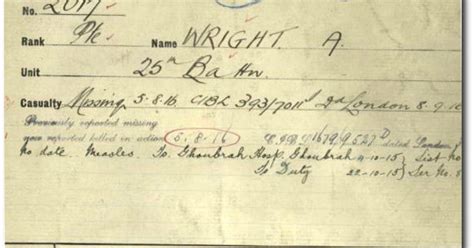 No. 2017
Rank Pte Name WRIGHT. A.
Unit 25th Battn.
Casualty Missing 5-8-16 CBL 393/7011 London 8-9-16
Previously reported missing
now reported killed in action 5.8.16 dated London
no date. Measles. To Ghoubrah Hosp. Ghoubrah 4-10-15 List No
To Duty 22-10-15 Ser No. 8